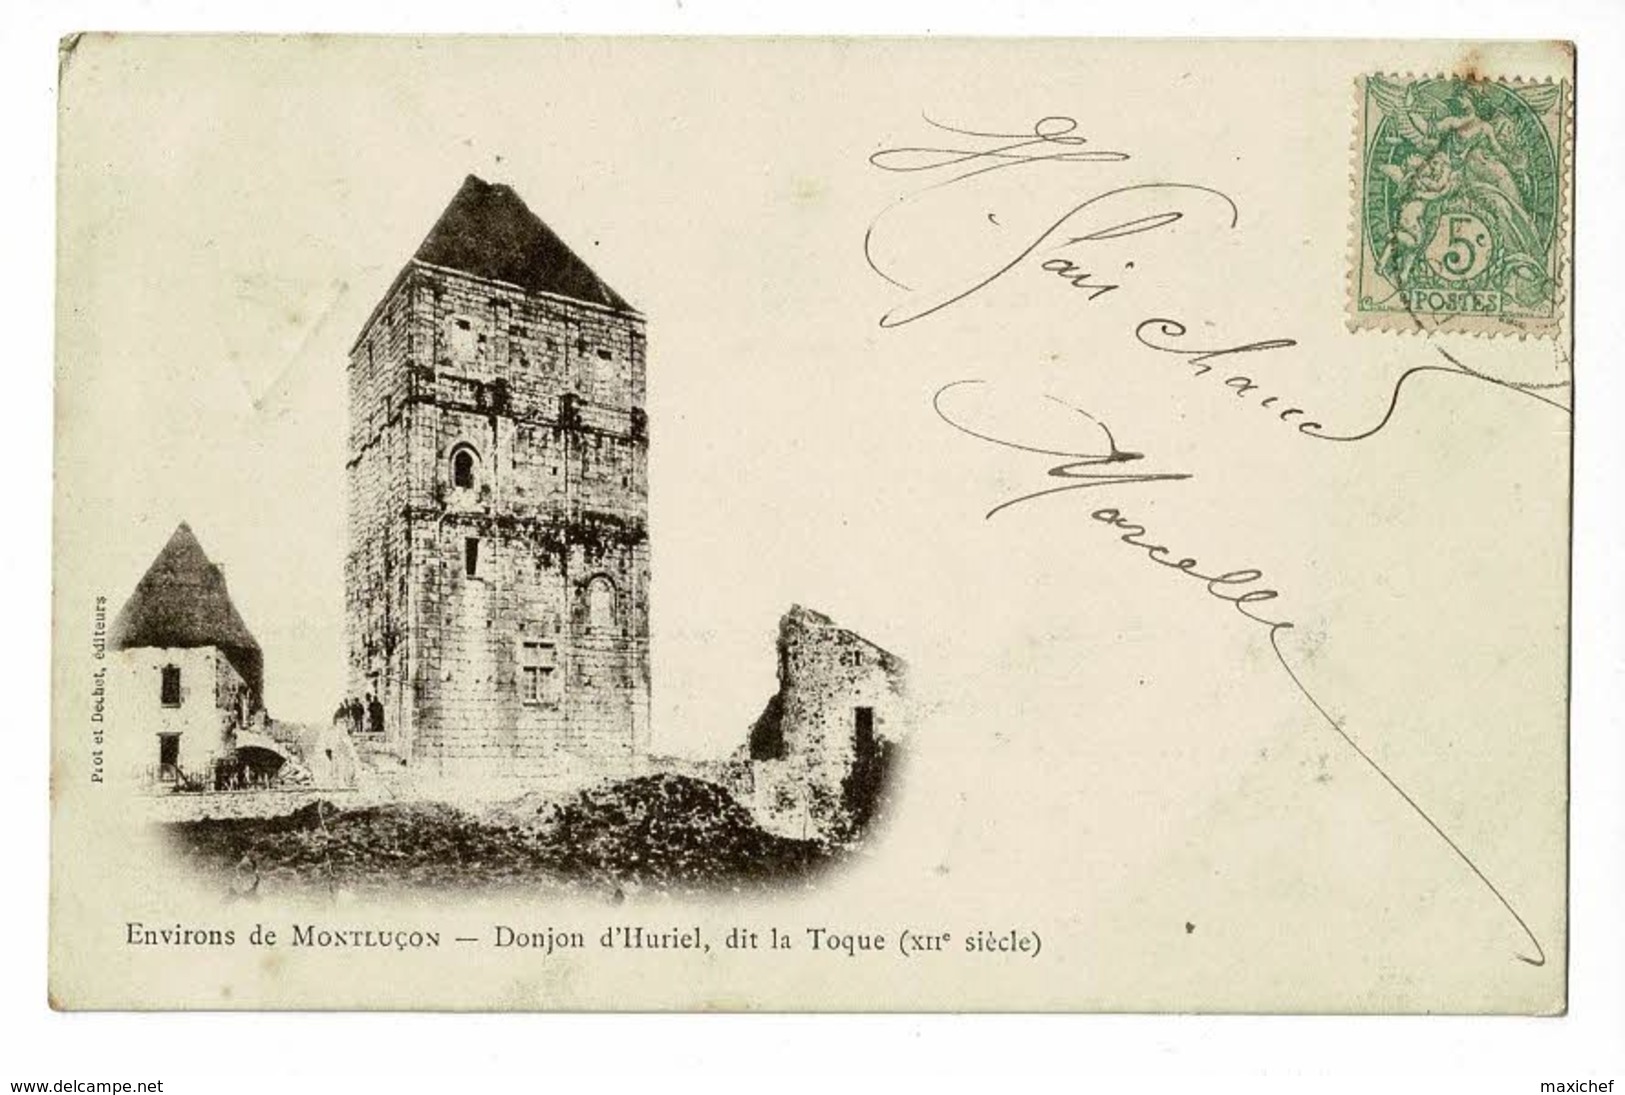 Il fait chaud
Marcelle
5c
POSTES
Prot et Dechet, éditeurs
Environs de MONTLUÇON — Donjon d'Huriel, dit la Toque (XIIe siècle)
www.delcampe.net
maxichef